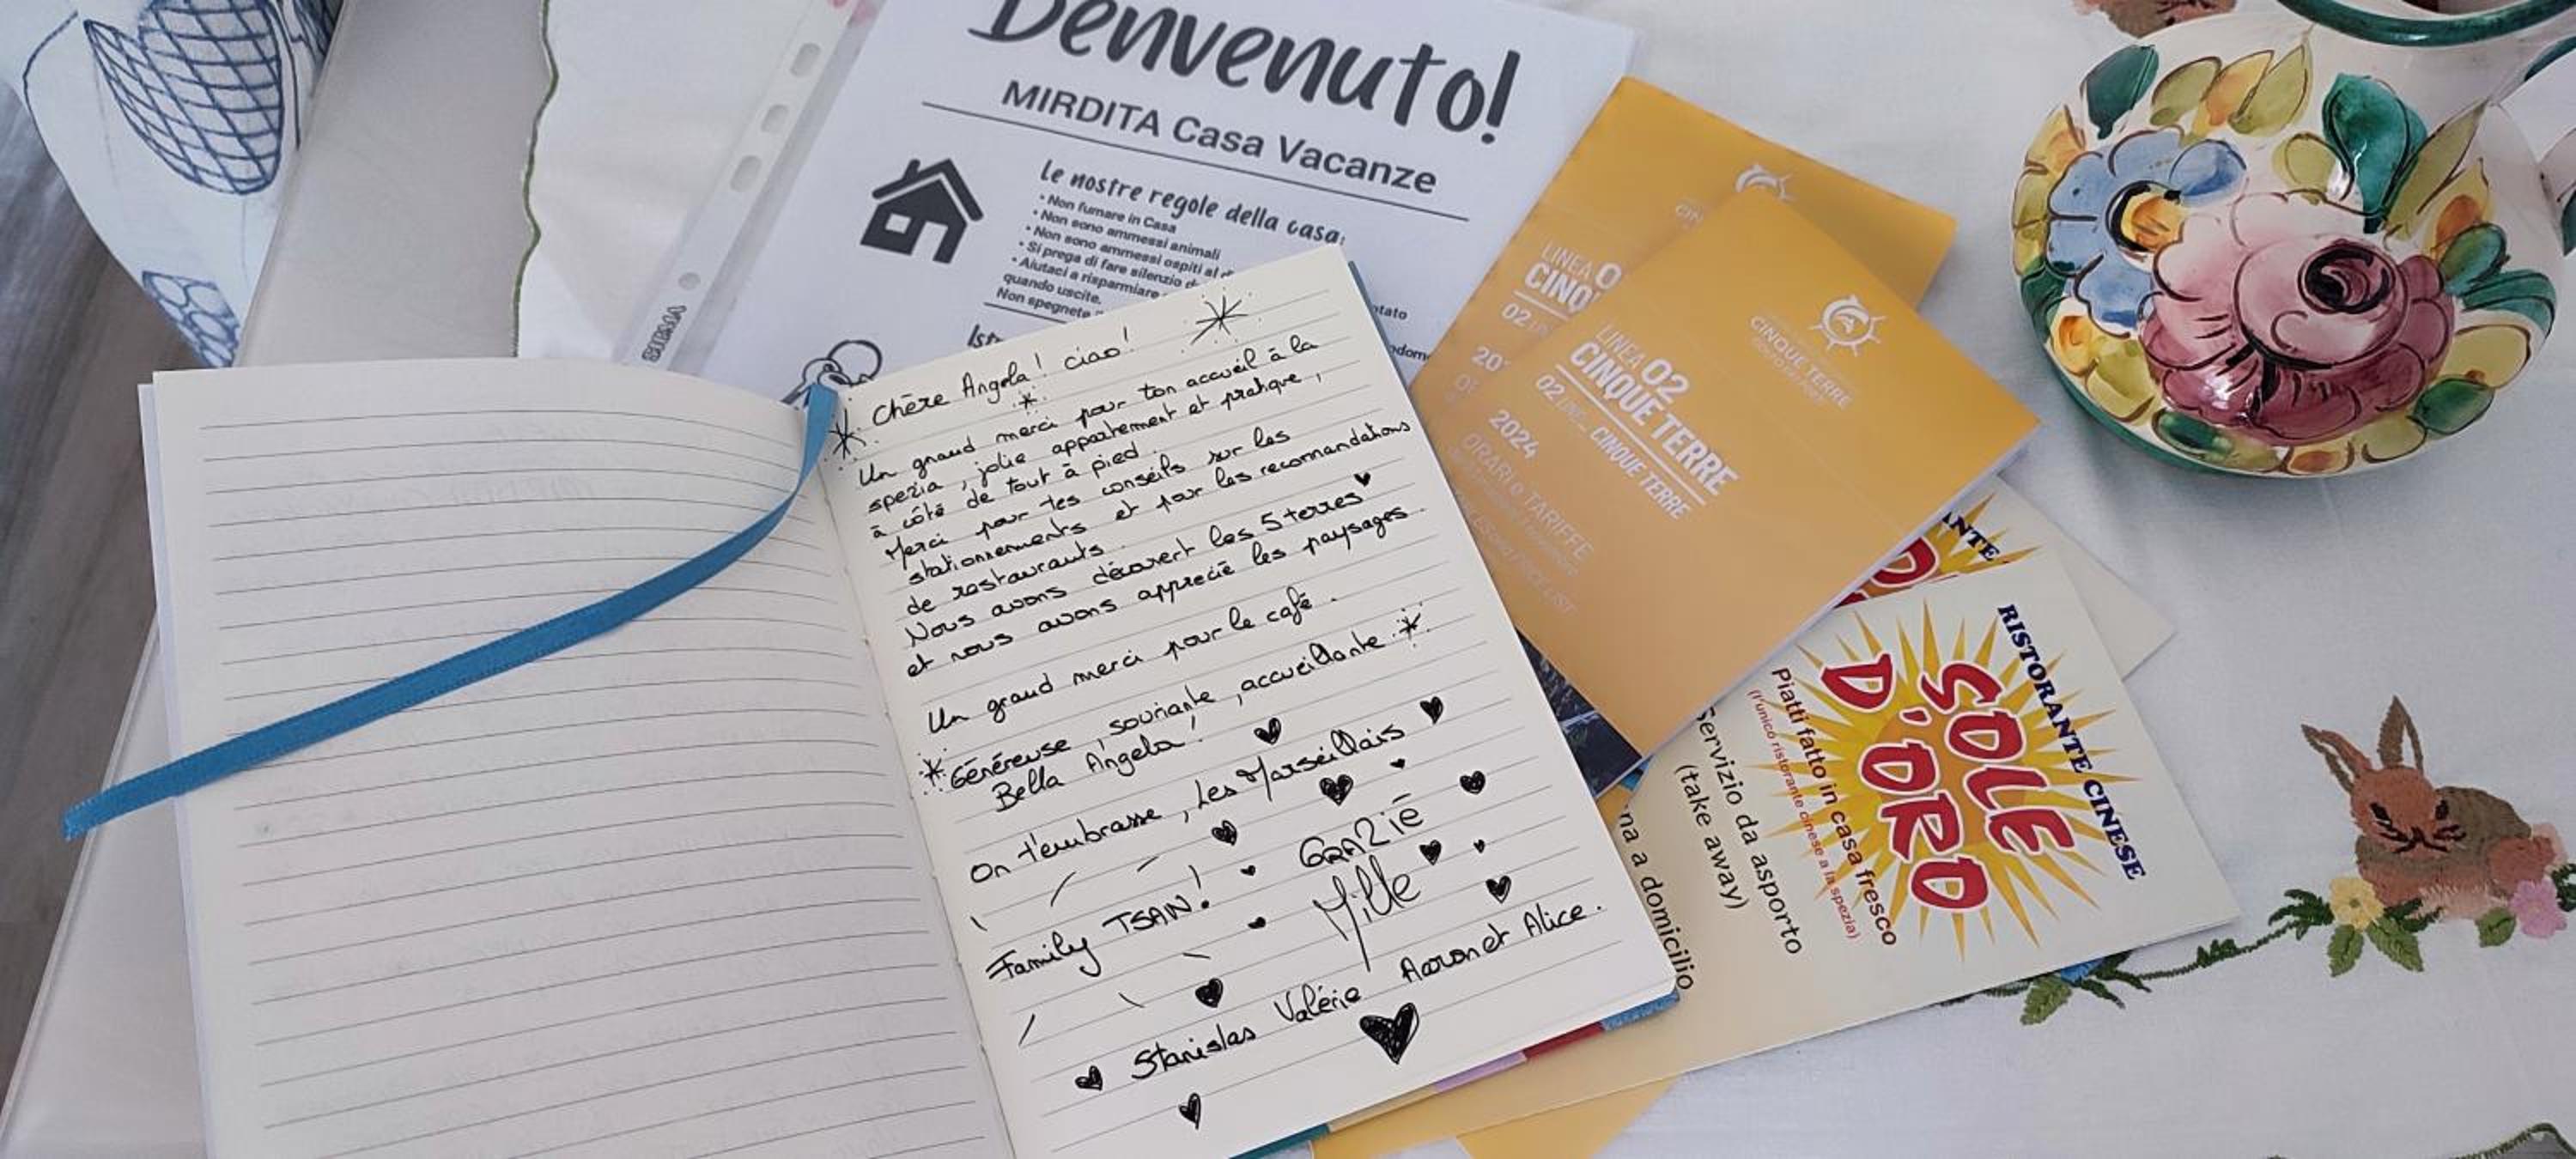 Benvenuto!
MIRDITA Casa Vacanze
Le nostre regole della casa:
• Non fumare in Casa
• Non sono ammessi animali
• Non sono ammessi ospiti al
• Si prega di fare silenzio
• Aiutaci a risparmiare
quando uscite.
Non spegnete
Chère Angela! ciao!
Un grand merci pour ton accueil à la
spezia, jolie appartement et pratique,
à côté de tout à pied.
Merci pour tes conseils sur les
stationnements et pour les recomandations
de restaurants.
Nous avons découvert les 5 terres
et nous avons apprecié les paysages.
Un grand merci pour le café.
Généreuse, souriante, accueillante.
Bella Angela!
On t'embrasse, Les Marseillais
Family TSAN!
GRAZiE
Mille
Stanislas Valérie Aaron et Alice.
LINEA 0
CINQ
02
20
LINEA 02
CINQUE TERRE
02 LINE CINQUE TERRE
2024
ORARI e TARIFFE
CINQUE TERRE
ANTE
RISTORANTE CINESE
SOLE
D'ORO
Piatti fatto in casa fresco
(l'unico ristorante cinese a la spezia)
Servizio da asporto
(take away)
na a domicilio